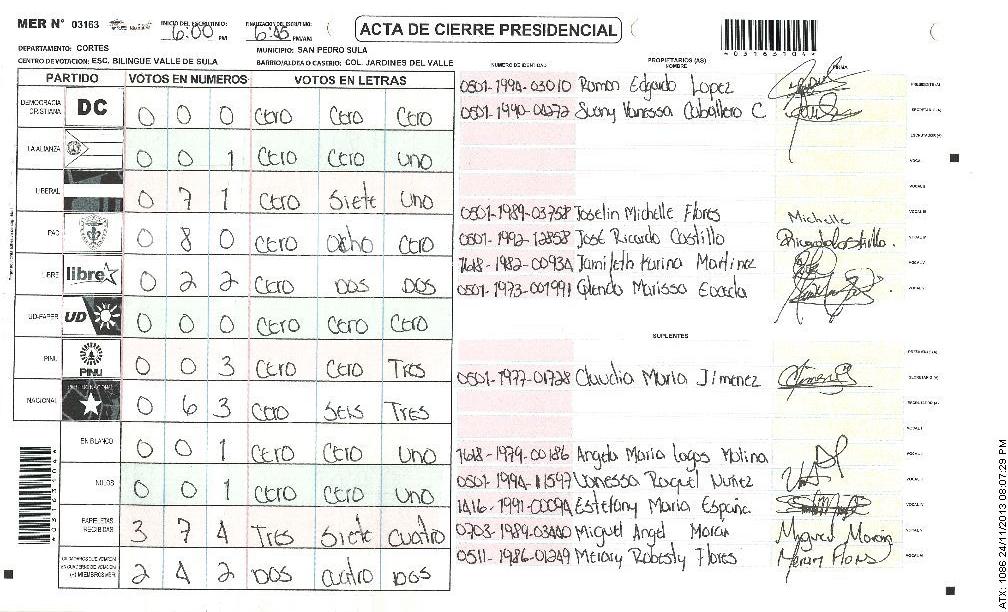 MER N° 03163
INICIO DEL ESCRUTINIO: 6:00 PM
FINALIZACION DEL ESCRUTINIO: 6:45 PM/AM
ACTA DE CIERRE PRESIDENCIAL
DEPARTAMENTO: CORTES
MUNICIPIO: SAN PEDRO SULA
CENTRO DE VOTACION: ESC. BILINGUE VALLE DE SULA
BARRIO/ALDEA O CASERIO: COL. JARDINES DEL VALLE
PARTIDO VOTOS EN NUMEROS VOTOS EN LETRAS
DEMOCRACIA CRISTIANA DC 0 0 0 CERO CERO CERO
LA ALIANZA 0 0 1 CERO CERO UNO
LIBERAL 0 7 1 CERO SIETE UNO
PAC 0 8 0 CERO OCHO CERO
LIBRE libre 0 2 2 CERO DOS DOS
UD-FAPER UD 0 0 0 CERO CERO CERO
PINU PINU 0 0 3 CERO CERO TRES
NACIONAL 0 6 3 CERO SEIS TRES
EN BLANCO 0 0 1 CERO CERO UNO
NULOS 0 0 1 CERO CERO UNO
PAPELETAS RECIBIDAS 3 7 4 TRES SIETE CUATRO
2 4 2 DOS CUATRO DOS
NUMERO DE IDENTIDAD
PROPIETARIOS (AS)
NOMBRE
FIRMA
0501-1994-03010 Ramon Edgardo Lopez PRESIDENTE(A)
Suany Vanessa Caballero C SECRETARIO(A)
ESCRUTADOR(A)
VOCAL I
VOCAL II
0501-1989-03758 Joselin Michelle Flores Michelle VOCAL III
0501-1992-12858 José Ricardo Castillo Ricardo Castillo. VOCAL IV
Jamileth Karina Martinez VOCAL V
Glenda Marissa
SUPLENTES
PRESIDENTE(A)
0501-1977-01728 Claudia Maria Jimenez SECRETARIO(A)
ESCRUTADOR(A)
VOCAL I
1618-1979-00186 Angela Maria Lagos Molina
0501-1994-11597 Vanessa Raquel Nuñez
Estefany Maria España
Miguel Angel Moran Miguel Moran
0511-1986-01249 Merary Robesty Flores Merary Flores
ATX: 1086 24/11/2013 08:07:29 PM